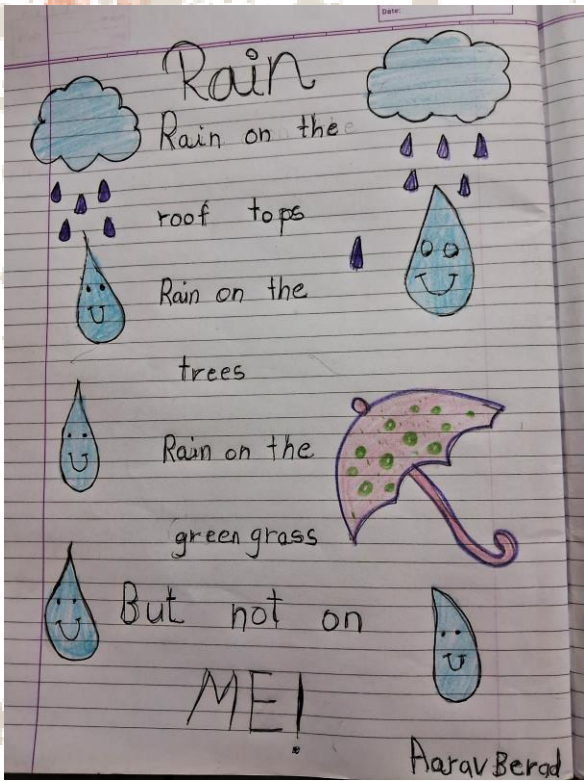 Date:
Rain
Rain on the
roof tops
Rain on the
trees
Rain on the
green grass
But not on
ME!
Aarav Berad